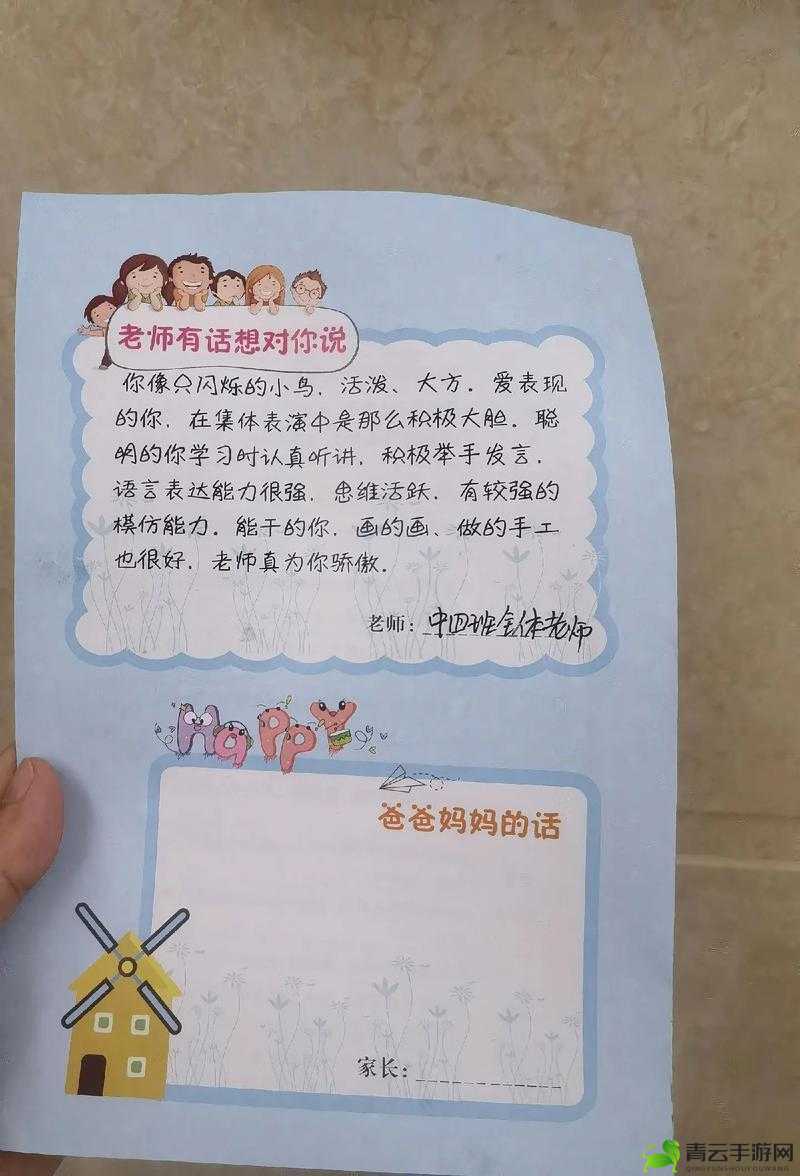 老师有话想对你说
你像只闪烁的小鸟，活泼、大方。爱表现
的你，在集体表演中是那么积极大胆。聪
明的你学习时认真听讲，积极举手发言，
语言表达能力很强，思维活跃，有较强的
模仿能力。能干的你，画的画、做的手工
也很好，老师真为你骄傲。
老师：中四班全体老师
HAPPY
爸爸妈妈的话
家长：
青云手游网
QINGYUNSHOUYOUWANG